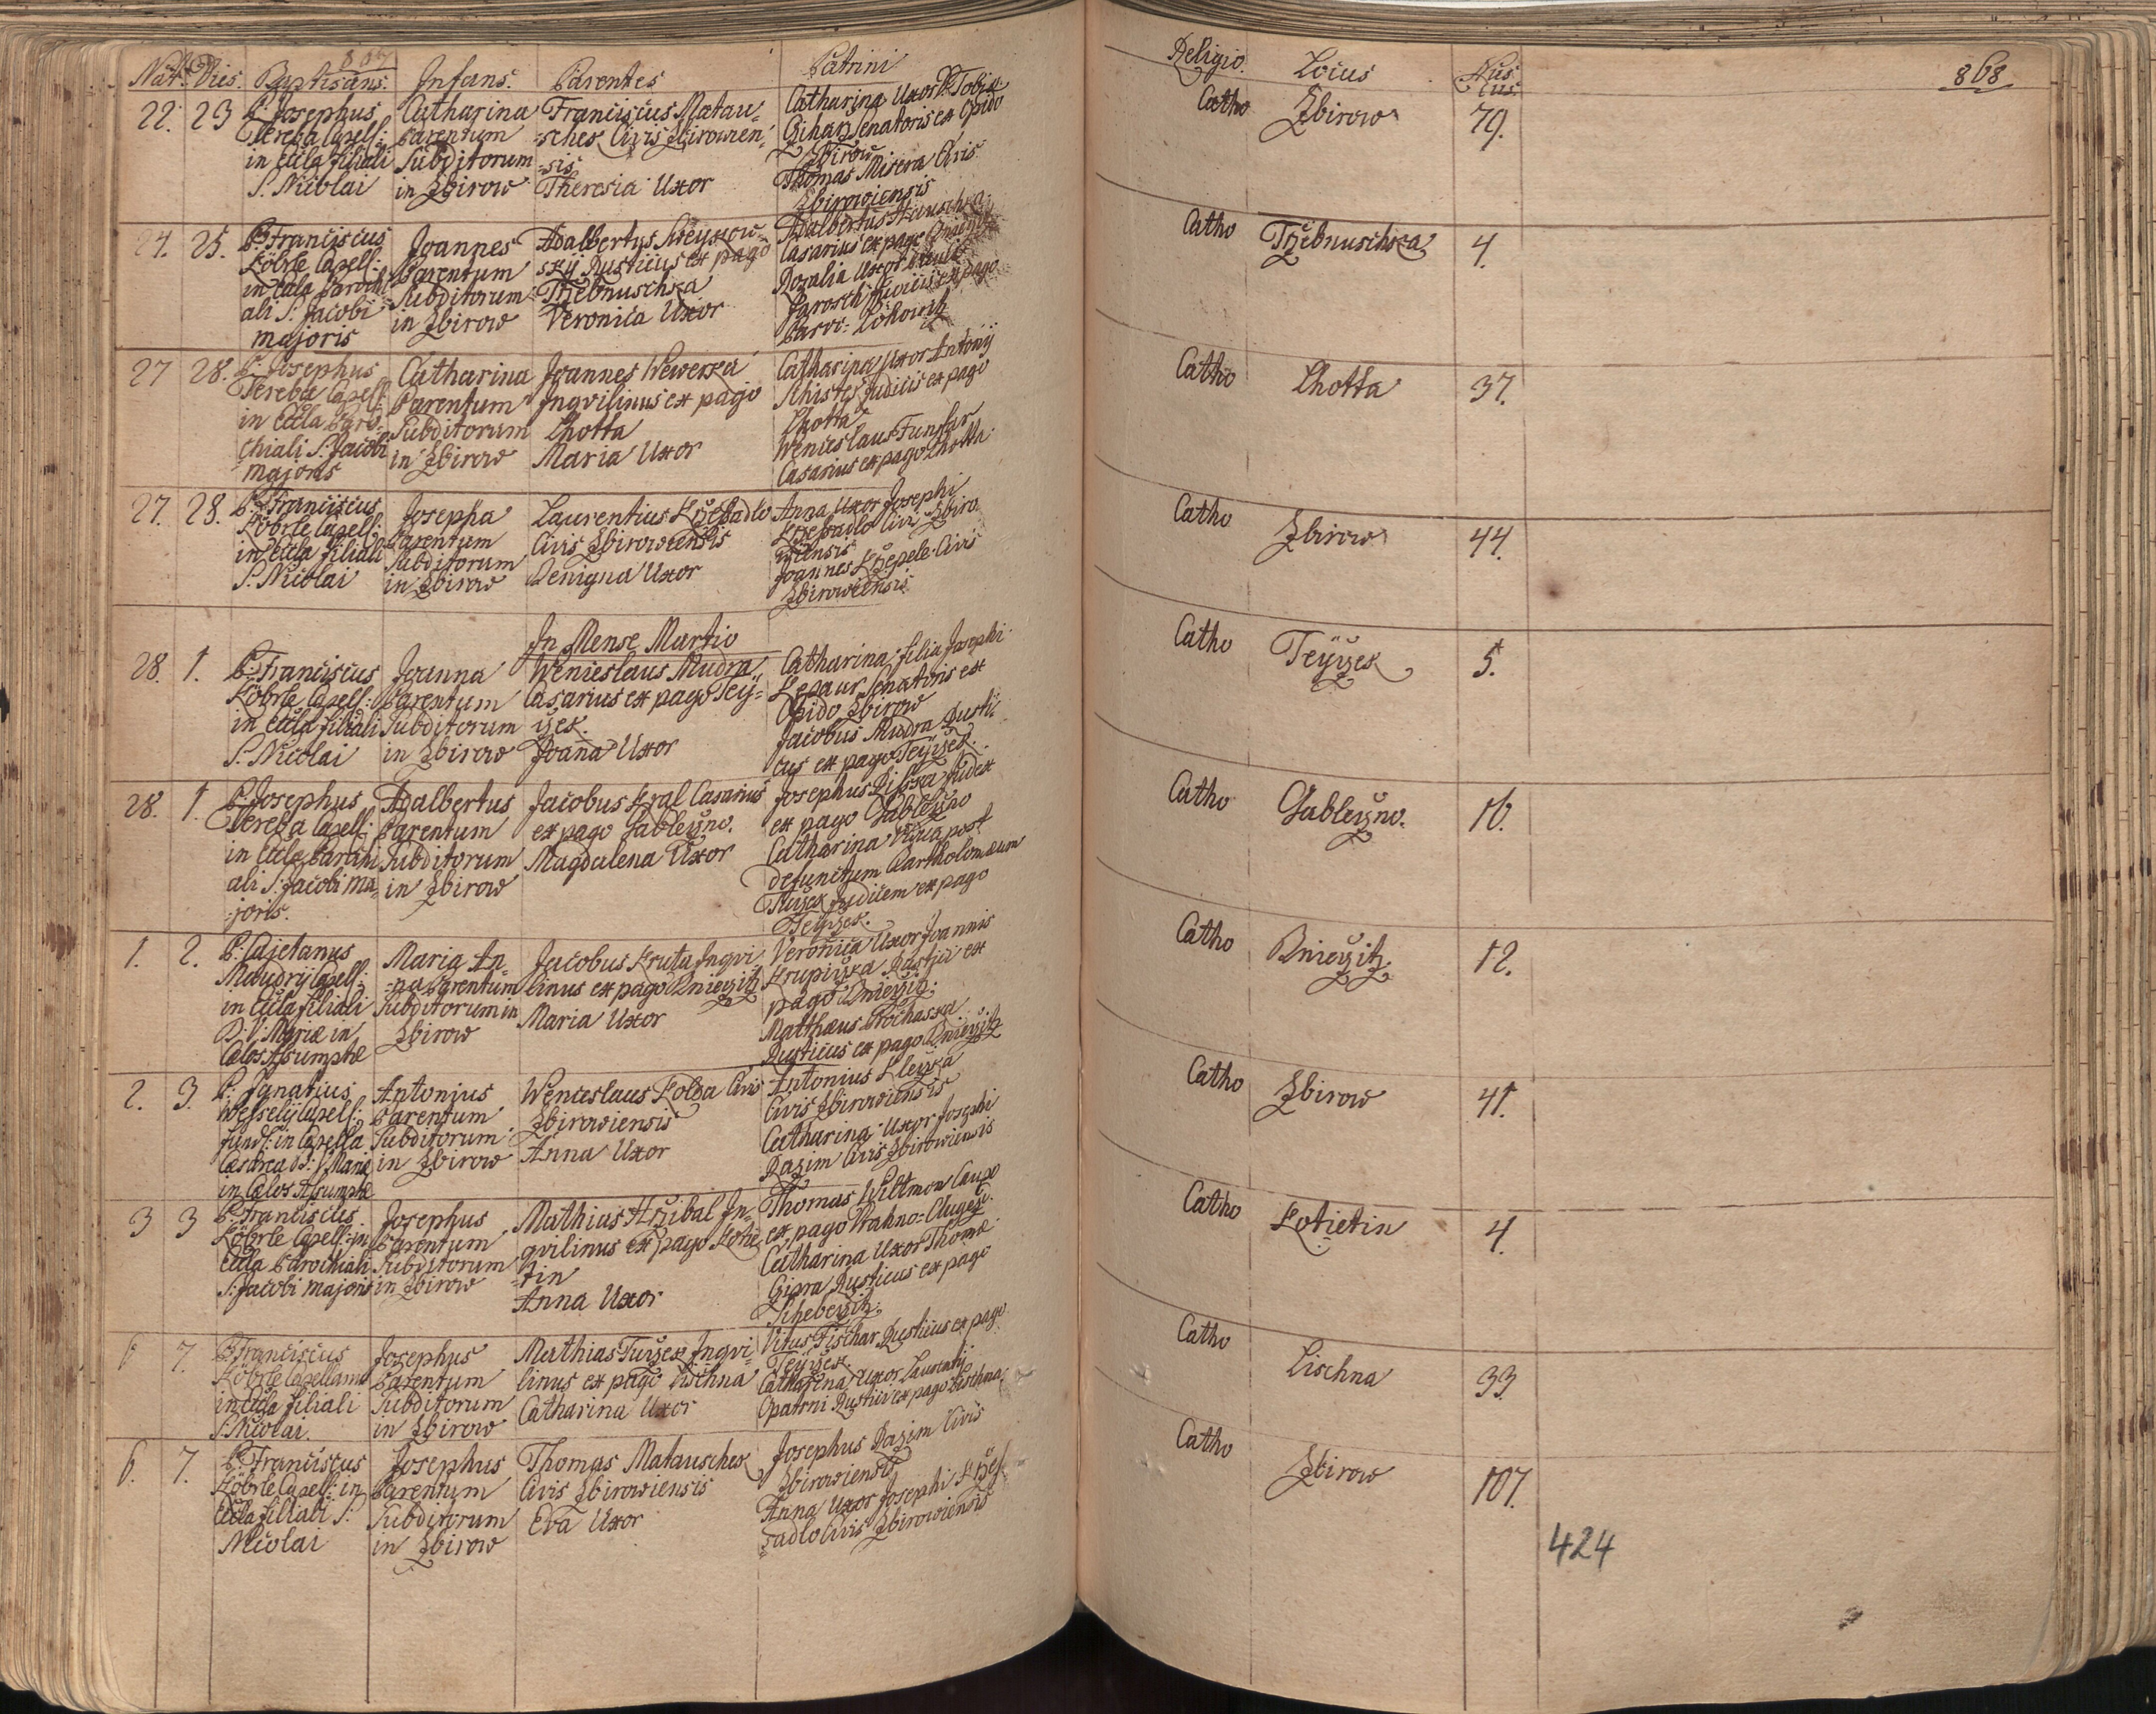 Nat. Dies. Baptisans. Infans. Parentes Patrini
22. 23 P. Josephus
Tereba Capell:
in Eccla filiali
S. Nicolai
Catharina
Parentum
Subditorum
in Zbirow
Franciscus Matau-
-schek Civis Zbirowien-
-sis
Theresia Uxor
Catharina Uxor Tobiæ
Cihar Senatoris ex Opido
Zbirow
Thomas Misera Civis
Zbirowiensis
24. 25. P. Franciscus
Köbrle Capell:
in Eccla Parochi
ali S. Jacobi
majoris
Joannes
Parentum
Subditorum
in Zbirow
Adalbertus
skÿ Rusticus ex pago
Trzebnuschka
Veronica Uxor
Adalbertus
Casarius ex pago
Rosalia Uxor
Jarosch ex pago
Parvi: Lohowitz
27 28. P. Josephus
Tereba Capell:
in Eccla Paro-
chiali S. Jacobi
majoris
Catharina
Parentum
Subditorum
in Zbirow
Joannes Wewerka
Inqvilinus ex pago
Lhotta
Maria Uxor
Catharina Uxor Antonÿ
Judicis ex pago
Lhotta
Wenceslaus
Casarius ex pago Lhotta
27. 28. P. Franciscus
Köbrle Capell:
in Eccla filiali
S. Nicolai
Josepha
Parentum
Subditorum
in Zbirow
Laurentius Krzepadlo
Civis Zbirowiensis
Benigna Uxor
Anna Uxor Josephi
Civi Zbiro
wiensis
Joannes Krzepele Civis
Zbirowiensis
In Mense Martio
28. 1. P. Franciscus
Köbrle Capell:
in Eccla filiali
S. Nicolai
Joanna
Parentum
Subditorum
in Zbirow
Wenceslaus Mudra
Casarius ex pago Teÿ-
czek.
Joana Uxor
Catharina filia Josephi
Lepaur Senatoris ex
Opido Zbirow
Jacobus Mudra Rusti-
cus ex pago Teÿczek.
28. 1. P. Josephus
Tereba Capell:
in Eccla Parochi
ali S. Jacobi ma-
-joris.
Adalbertus
Parentum
Subditorum
in Zbirow
Jacobus Kral Casarius
ex pago Jableczno.
Magdalena Uxor
Josephus Judex
ex pago Jableczno
Catharina Vidua post
defunctum Bartholomæum
Judicem ex pago
Teÿczek.
1. 2. P. Cajetanus
Maudrÿ Capell:
in Eccla filiali
B: V: Mariæ in
Cælos Assumptæ
Maria An-
-na Parentum
Subditorum in
Zbirow
Jacobus Kruta Inqvi
linus ex pago Kniezitz
Maria Uxor
Veronica Uxor Joannis
Krupiczka Rustici ex
pago Kniezitz.
Matthæus Prochaska
Rusticus ex pago Kniezitz
2. 3. P. Ignatius
Wesselÿ Capell:
fund: in Capella
Cæsarea B: V: Mariæ
in Cælos Assumptæ
Antonius
Parentum
Subditorum
in Zbirow
Wenceslaus Civis
Zbirowiensis
Anna Uxor
Antonius Kleczka
Civis Zbirowiensis
Catharina Uxor Josephi
Razim Civis Zbirowiensis
3 3 P. Franciscus
Köbrle Capell: in
Eccla Parochiali
S. Jacobi majoris
Josephus
Parentum
Subditorum
in Zbirow
Mathias Hrzibal In-
qvilinus ex pago Kotie
-tin
Anna Uxor
Thomas Wiltmon Caupo
ex pago
Catharina Uxor Thomæ
Rusticus ex pago
Schebeczitz.
6 7. P. Franciscus
Köbrle Capellanus
in Eccla filiali
S. Nicolai.
Josephus
Parentum
Subditorum
in Zbirow
Mathias Turczek Inqvi-
linus ex pago Lischna
Catharina Uxor
Vitus Fischar Rusticus ex pago
Teÿczek.
Catharina Uxor Laurentÿ
Opatrni Rustici ex pago Lischna
6. 7. P. Franciscus
Köbrle Capell: in
Eccla filiali S:
Nicolai
Josephus
Parentum
Subditorum
in Zbirow
Thomas Matauschek
Civis Zbirowiensis
Eva Uxor
Josephus Razim Civis
Zbirowiensis
Anna Uxor Josephi Krze-
-padlo Civis Zbirowiensis
Religio. Locus Nus
868
Catho Zbirow 79.
Catho Trzebnuschka 4.
Catho Lhotta 37.
Catho Zbirow 44.
Catho Teÿczek 5.
Catho Jableczno. 16.
Catho Kniezitz 12.
Catho Zbirow 41.
Catho Kotietin 4.
Catho Lischna 33
Catho Zbirow 107.
424